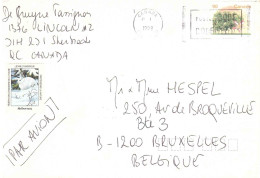 De Bruyne Tassignon
1346 LINCOLN #2
J1H 2J1 Sherbrooke
QC CANADA
PAR AVION
Mr & Mme HESPEL
250 Av de BROQUEVILLE
Bte 3
B-1200 BRUXELLES
BELGIQUE